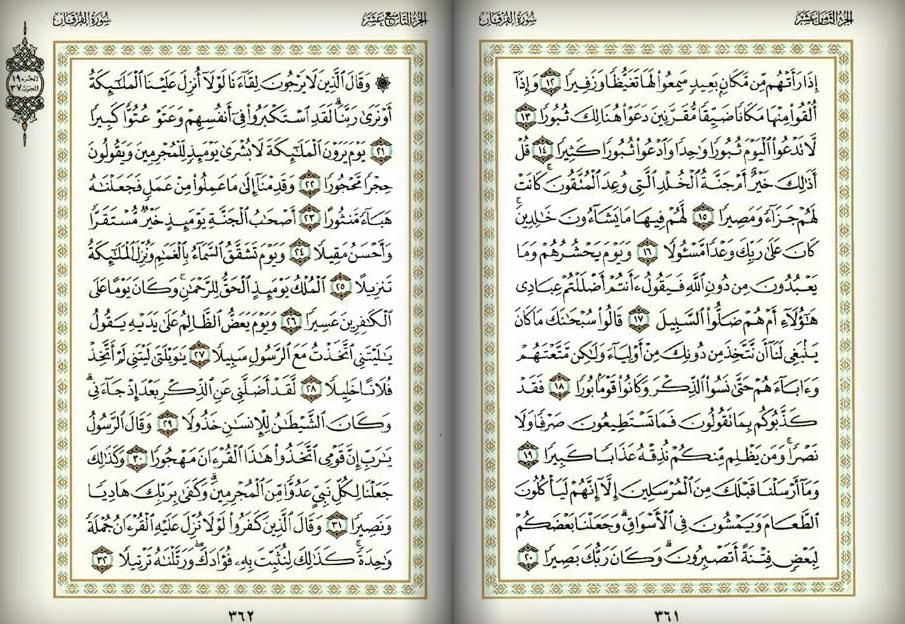 الجزء الثامن عشر سورة الفرقان
إِذَا رَأَتْهُم مِّن مَّكَانٍۭ بَعِيدٍ سَمِعُوا۟ لَهَا تَغَيُّظًا وَزَفِيرًا ١٢ وَإِذَآ
أُلْقُوا۟ مِنْهَا مَكَانًا ضَيِّقًا مُّقَرَّنِينَ دَعَوْا۟ هُنَالِكَ ثُبُورًا ١٣
لَّا تَدْعُوا۟ ٱلْيَوْمَ ثُبُورًا وَٰحِدًا وَٱدْعُوا۟ ثُبُورًا كَثِيرًا ١٤ قُلْ
أَذَٰلِكَ خَيْرٌ أَمْ جَنَّةُ ٱلْخُلْدِ ٱلَّتِى وُعِدَ ٱلْمُتَّقُونَ ۚ كَانَتْ
لَهُمْ جَزَآءً وَمَصِيرًا ١٥ لَّهُمْ فِيهَا مَا يَشَآءُونَ خَٰلِدِينَ ۚ
كَانَ عَلَىٰ رَبِّكَ وَعْدًا مَّسْـُٔولًا ١٦ وَيَوْمَ يَحْشُرُهُمْ وَمَا
يَعْبُدُونَ مِن دُونِ ٱللَّهِ فَيَقُولُ ءَأَنتُمْ أَضْلَلْتُمْ عِبَادِى
هَٰٓؤُلَآءِ أَمْ هُمْ ضَلُّوا۟ ٱلسَّبِيلَ ١٧ قَالُوا۟ سُبْحَٰنَكَ مَا كَانَ
يَنۢبَغِى لَنَآ أَن نَّتَّخِذَ مِن دُونِكَ مِنْ أَوْلِيَآءَ وَلَٰكِن مَّتَّعْتَهُمْ
وَءَابَآءَهُمْ حَتَّىٰ نَسُوا۟ ٱلذِّكْرَ وَكَانُوا۟ قَوْمًۢا بُورًا ١٨ فَقَدْ
كَذَّبُوكُم بِمَا تَقُولُونَ فَمَا تَسْتَطِيعُونَ صَرْفًا وَلَا
نَصْرًا ۚ وَمَن يَظْلِم مِّنكُمْ نُذِقْهُ عَذَابًا كَبِيرًا ١٩
وَمَآ أَرْسَلْنَا قَبْلَكَ مِنَ ٱلْمُرْسَلِينَ إِلَّآ إِنَّهُمْ لَيَأْكُلُونَ
ٱلطَّعَامَ وَيَمْشُونَ فِى ٱلْأَسْوَاقِ ۗ وَجَعَلْنَا بَعْضَكُمْ
لِبَعْضٍ فِتْنَةً أَتَصْبِرُونَ ۗ وَكَانَ رَبُّكَ بَصِيرًا ٢٠
٣٦١
الجزء التاسع عشر سورة الفرقان
الجزء ١٩
الحزب ٣٧
۞ وَقَالَ ٱلَّذِينَ لَا يَرْجُونَ لِقَآءَنَا لَوْلَآ أُنزِلَ عَلَيْنَا ٱلْمَلَٰٓئِكَةُ
أَوْ نَرَىٰ رَبَّنَا ۗ لَقَدِ ٱسْتَكْبَرُوا۟ فِىٓ أَنفُسِهِمْ وَعَتَوْ عُتُوًّا كَبِيرًا
٢١ يَوْمَ يَرَوْنَ ٱلْمَلَٰٓئِكَةَ لَا بُشْرَىٰ يَوْمَئِذٍ لِّلْمُجْرِمِينَ وَيَقُولُونَ
حِجْرًا مَّحْجُورًا ٢٢ وَقَدِمْنَآ إِلَىٰ مَا عَمِلُوا۟ مِنْ عَمَلٍ فَجَعَلْنَٰهُ
هَبَآءً مَّنثُورًا ٢٣ أَصْحَٰبُ ٱلْجَنَّةِ يَوْمَئِذٍ خَيْرٌ مُّسْتَقَرًّا
وَأَحْسَنُ مَقِيلًا ٢٤ وَيَوْمَ تَشَقَّقُ ٱلسَّمَآءُ بِٱلْغَمَٰمِ وَنُزِّلَ ٱلْمَلَٰٓئِكَةُ
تَنزِيلًا ٢٥ ٱلْمُلْكُ يَوْمَئِذٍ ٱلْحَقُّ لِلرَّحْمَٰنِ ۚ وَكَانَ يَوْمًا عَلَى
ٱلْكَٰفِرِينَ عَسِيرًا ٢٦ وَيَوْمَ يَعَضُّ ٱلظَّالِمُ عَلَىٰ يَدَيْهِ يَقُولُ
يَٰلَيْتَنِى ٱتَّخَذْتُ مَعَ ٱلرَّسُولِ سَبِيلًا ٢٧ يَٰوَيْلَتَىٰ لَيْتَنِى لَمْ أَتَّخِذْ
فُلَانًا خَلِيلًا ٢٨ لَّقَدْ أَضَلَّنِى عَنِ ٱلذِّكْرِ بَعْدَ إِذْ جَآءَنِى ۗ
وَكَانَ ٱلشَّيْطَٰنُ لِلْإِنسَٰنِ خَذُولًا ٢٩ وَقَالَ ٱلرَّسُولُ
يَٰرَبِّ إِنَّ قَوْمِى ٱتَّخَذُوا۟ هَٰذَا ٱلْقُرْءَانَ مَهْجُورًا ٣٠ وَكَذَٰلِكَ
جَعَلْنَا لِكُلِّ نَبِىٍّ عَدُوًّا مِّنَ ٱلْمُجْرِمِينَ ۗ وَكَفَىٰ بِرَبِّكَ هَادِيًا
وَنَصِيرًا ٣١ وَقَالَ ٱلَّذِينَ كَفَرُوا۟ لَوْلَا نُزِّلَ عَلَيْهِ ٱلْقُرْءَانُ جُمْلَةً
وَٰحِدَةً ۚ كَذَٰلِكَ لِنُثَبِّتَ بِهِۦ فُؤَادَكَ ۖ وَرَتَّلْنَٰهُ تَرْتِيلًا ٣٢
٣٦٢